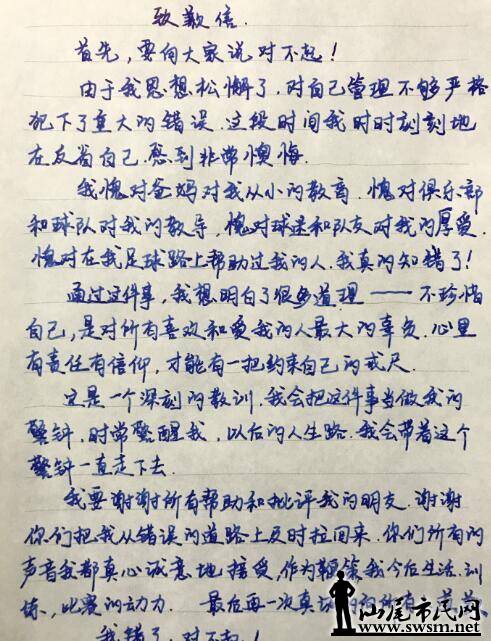 致歉信.
首先，要向大家说对不起！
由于我思想松懈了，对自己管理不够严格
犯下了重大的错误.这段时间我时时刻刻地
在反省自己.感到非常懊悔.
我愧对爸妈对我从小的教育.愧对俱乐部
和球队对我的教导，愧对球迷和队友对我的厚爱.
愧对在我足球路上帮助过我的人.我真的知错了！
通过这件事，我想明白了很多道理——不珍惜
自己，是对所有喜欢和爱我的人最大的辜负.心里
有责任有信仰，才能有一把约束自己的戒尺.
这是一个深刻的教训.我会把这件事当做我的
警钟，时常警醒我，以后的人生路.我会带着这个
警钟一直走下去.
我要谢谢所有帮助和批评我的朋友.谢谢
你们把我从错误的道路上及时拉回来.你们所有的
声音我都真心诚意地接受，作为鞭策我今后生活.训
练，比赛的动力.最后再一次真
我错了.对不起！
汕尾市民网
www.swsm.net